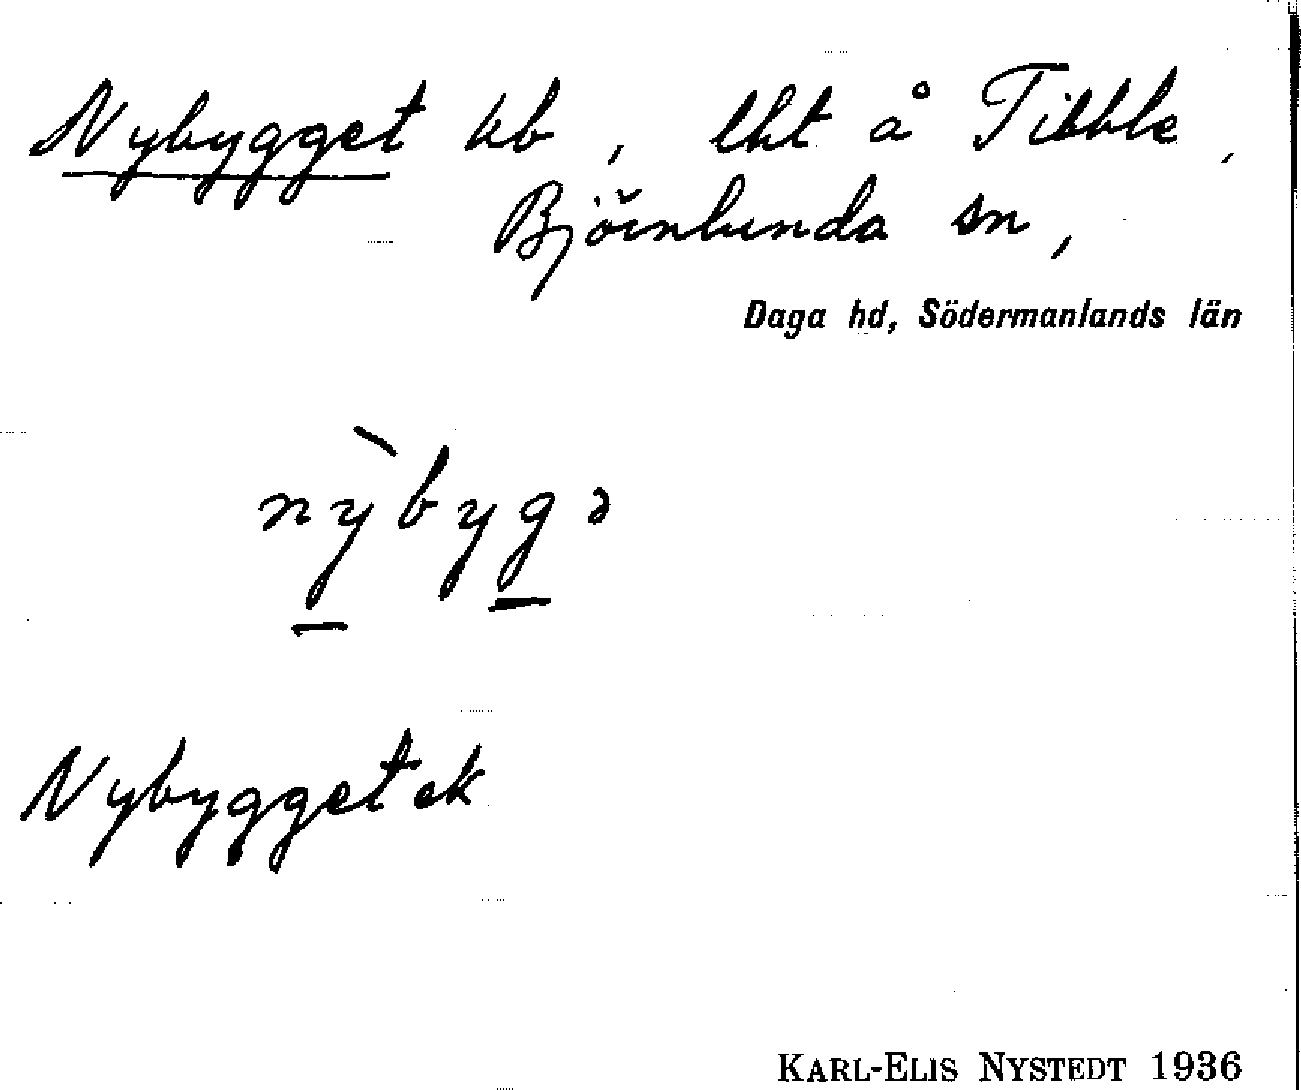 Nybygget kb, lht å Tibble,
Björnlunda sn,
Daga hd, Södermanlands län
nỳbygə
Nybygget ek
KARL-ELIS NYSTEDT 1936